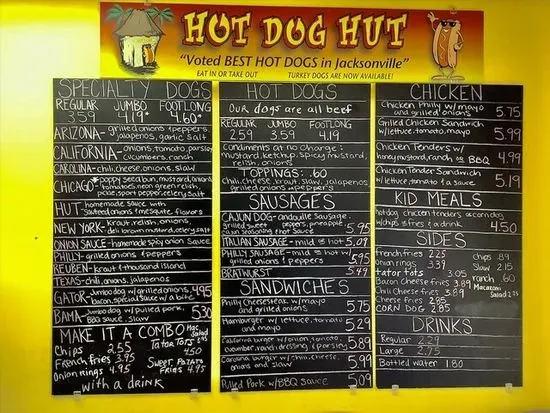 HOT DOG HUT
"Voted BEST HOT DOGS in Jacksonville"
EAT IN OR TAKE OUT TURKEY DOGS ARE NOW AVAILABLE!
SPECIALTY DOGS
REGULAR JUMBO FOOTLONG
3.59 4.19* 4.60*
ARIZONA-grilled onions & peppers,
jalapenos, garlic salt
CALIFORNIA-onions, tomato, parsley
cucumbers, ranch
CAROLINA-chili, cheese, onions, slaw
CHICAGO-poppy seed bun, mustard, onions,
tomatoes, neon green relish,
pickle, sport pepper, celery salt
HUT-homemade sauce with
sauteed onions & mesquite, flavors
NEW YORK-kraut, relish, onions,
deli brown mustard, celery salt
ONION SAUCE-homemade spicy onion sauce
PHILLY-grilled onions & peppers
REUBEN-kraut & thousand island
TEXAS-chili, onions, jalapenos
GATOR-Jumbo dog w/ grilled onions,
bacon, special sauce w/ a bite 4.95
BAMA-Jumbo dog w/ pulled pork,
BBQ sauce, slaw 5.30
MAKE IT A COMBO
Chips 2.55
French fries 3.95
Onion rings 4.95
Mac Salad
Tator Tots
4.50
Sweet Potato
Fries 4.95
with a drink
HOT DOGS
our dogs are all beef
REGULAR JUMBO FOOTLONG
2.59 3.59 4.19
Condiments at no charge:
mustard, ketchup, spicy mustard,
relish, onions
TOPPINGS: .60
chili, cheese, kraut, slaw, jalapenos
grilled onions & peppers
SAUSAGES
CAJUN DOG-andouille sausage,
grilled sweet peppers, pineapple
cajun seasoning, hot sauce 5.95
ITALIAN SAUSAGE-mild or hot 5.09
PHILLY SAUSAGE-mild or hot w/
grilled onions & peppers 5.95
BRATWURST 5.49
SANDWICHES
Philly Cheesesteak w/ mayo
and grilled onions 5.75
Hamburger w/ lettuce, tomato
and mayo 5.29
California burger w/ onion, tomato,
cucumber, ranch dressing & parsley 5.89
Carolina burger w/ chili, cheese,
onions and slaw 5.99
Pulled Pork w/ BBQ sauce 5.09
CHICKEN
Chicken Philly w/ mayo
and grilled onions 5.75
Grilled Chicken Sandwich
w/ lettuce, tomato, mayo 5.99
Chicken Tenders w/
honey mustard, ranch or BBQ 4.99
Chicken Tender Sandwich
w/ lettuce, tomato & sauce 5.19
KID MEALS
hotdog, chicken tenders or corndog
w/ chips or fries & a drink 4.50
SIDES
french fries 2.25
onion rings 3.39
tator tots 3.05
Bacon Cheese fries 3.89
Chili Cheese fries 3.89
Cheese fries 2.85
CORN DOG 2.85
chips .89
Slaw 2.15
ranch .60
Macaroni
Salad
DRINKS
Regular 2.29
Large 2.75
Bottled water 1.80